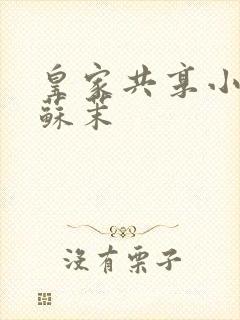 皇家共享小
蘇茉
没有栗子